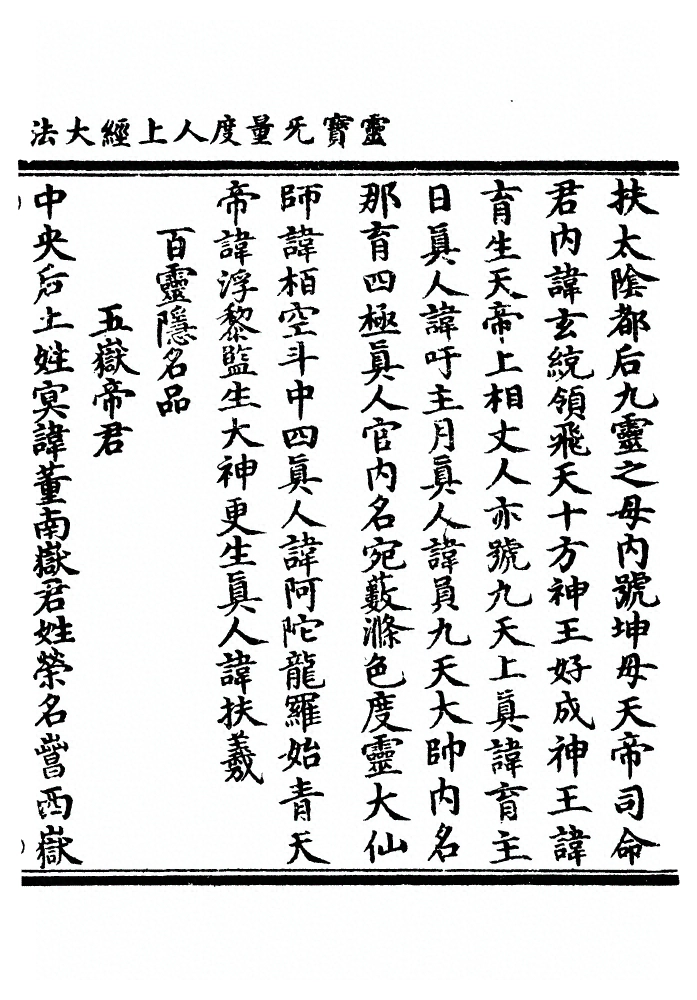 靈寶旡量度人上經大法
扶太陰都后九靈之母內號坤母天帝司命
君內諱玄統領飛天十方神王好成神王諱
育生天帝上相丈人亦號九天上真諱育主
日真人諱吁主月真人諱員九天大帥內名
那育四極真人官內名宛藪滌色度靈大仙
師諱栢空斗中四真人諱阿陀龍羅始青天
帝諱浮黎監生大神更生真人諱扶羲
百靈隱名品
五嶽帝君
中央后土姓冥諱董南嶽君姓榮名嵤西嶽